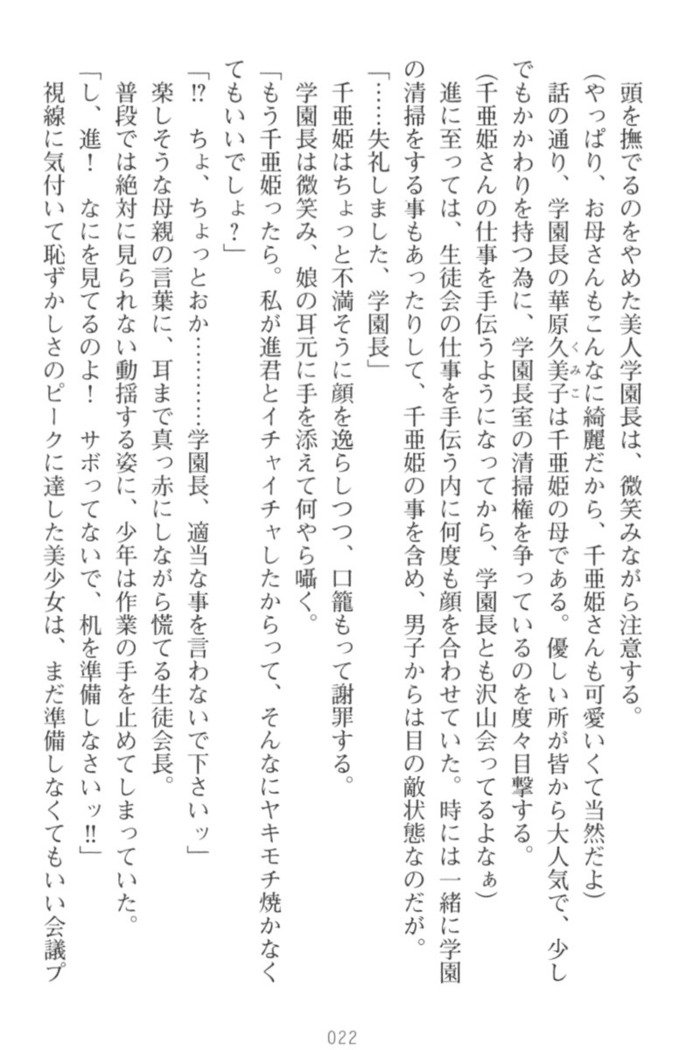 頭を撫でるのをやめた美人学園長は、微笑みながら注意する。
(やっぱり、お母さんもこんなに綺麗だから、千亜姫さんも可愛いくて当然だよ)
話の通り、学園長の華原久美子は千亜姫の母である。優しい所が皆から大人気で、少し
くみこ
でもかかわりを持つ為に、学園長室の清掃権を争っているのを度々目撃する。
(千亜姫さんの仕事を手伝うようになってから、学園長とも沢山会ってるよなぁ)
進に至っては、生徒会の仕事を手伝う内に何度も顔を合わせていた。時には一緒に学園
の清掃をする事もあったりして、千亜姫の事を含め、男子からは目の敵状態なのだが。
「……失礼しました、学園長」
千亜姫はちょっと不満そうに顔を逸らしつつ、口籠もって謝罪する。
学園長は微笑み、娘の耳元に手を添えて何やら囁く。
「もう千亜姫ったら。私が進君とイチャイチャしたからって、そんなにヤキモチ焼かなく
てもいいでしょ？」
「!?　ちょ、ちょっとおか…………学園長、適当な事を言わないで下さいッ」
楽しそうな母親の言葉に、耳まで真っ赤にしながら慌てる生徒会長。
普段では絶対に見られない動揺する姿に、少年は作業の手を止めてしまっていた。
「し、進！　なにを見てるのよ！　サボってないで、机を準備しなさいッ!!」
視線に気付いて恥ずかしさのピークに達した美少女は、まだ準備しなくてもいい会議プ
022